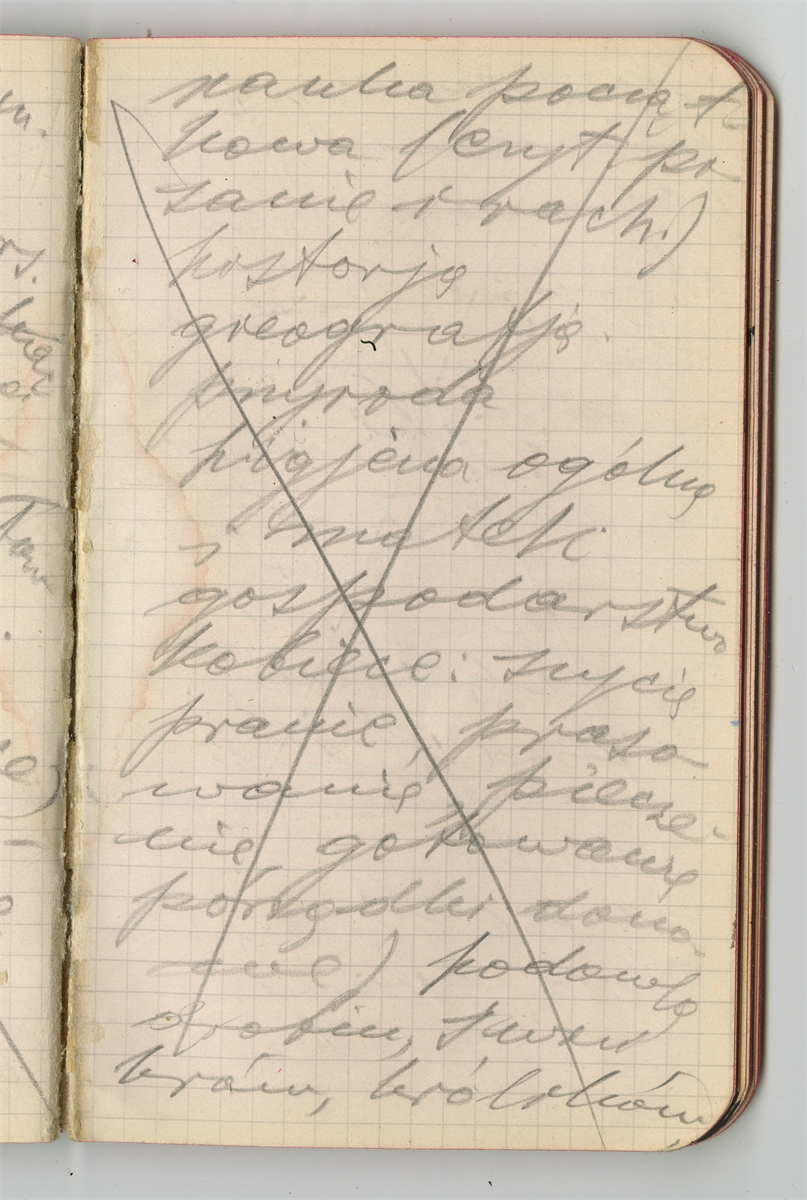 nauka począt
kowa (czyt pi
sanie i rach.)
historja
greografja.
przyroda
higjena ogólna
i matek
gospodarstwo
kobiece: szycie
pranie, praso
wanie, piecze-
nie, gotowanie
porządki domo
we) hodowla
drobiu, świń
krów, królików,